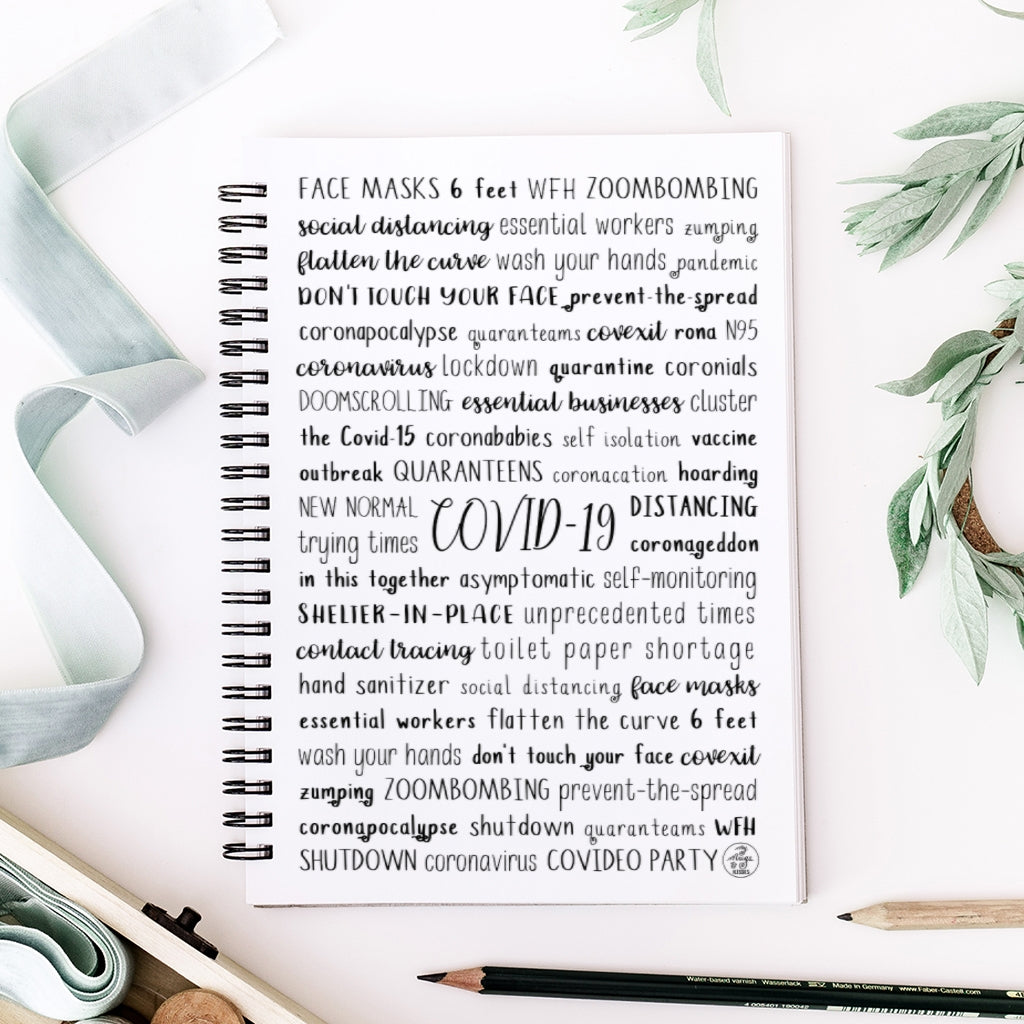 FACE MASKS 6 feet WFH ZOOMBOMBING
social distancing essential workers zumping
flatten the curve wash your hands pandemic
DON'T TOUCH YOUR FACE prevent-the-spread
coronapocalypse quaranteams covexit rona N95
coronavirus lockdown quarantine coronials
DOOMSCROLLING essential businesses cluster
the Covid-15 coronababies self isolation vaccine
outbreak QUARANTEENS coronacation hoarding
NEW NORMAL
trying times
COVID-19
DISTANCING
coronageddon
in this together asymptomatic self-monitoring
SHELTER-IN-PLACE unprecedented times
contact tracing toilet paper shortage
hand sanitizer social distancing face masks
essential workers flatten the curve 6 feet
wash your hands don't touch your face covexit
zumping ZOOMBOMBING prevent-the-spread
coronapocalypse shutdown quaranteams WFH
SHUTDOWN coronavirus COVIDEO PARTY
Water-based varnish Wasserlack Made in Germany www.Faber-Castell.com